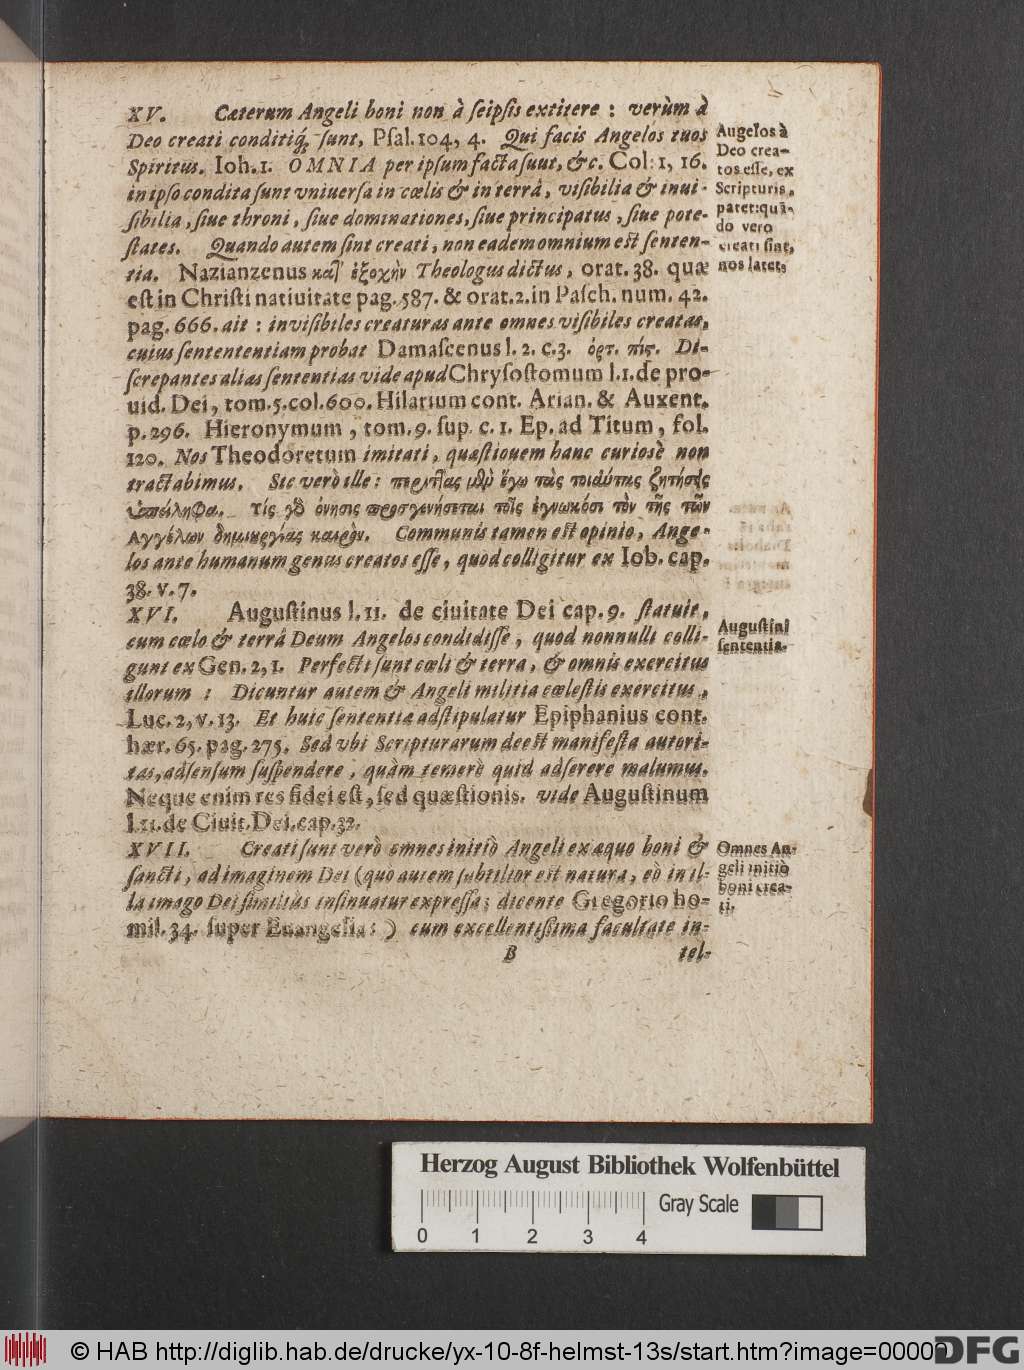 XV. Cæterum Angeli boni non à ſeipſis extitere : verùm à
Deo creati conditiq́; ſunt, Pſal. 104, 4. Qui facis Angelos tuos
Spiritus. Ioh. 1. OMNIA per ipſum facta ſuut, &c. Col: 1, 16.
in ipſo condita ſunt vniuerſa in cœlis & in terrâ, viſibilia & inui-
ſibilia, ſiue throni, ſiue dominationes, ſiue principatus, ſiue pote-
ſtates. Quando autem ſint creati, non eadem omnium eſt ſenten-
tia. Nazianzenus κατ' ἐξοχὴν Theologus dictus, orat. 38. quæ
eſt in Chriſti natiuitate pag. 587. & orat. 2. in Paſch. num. 42.
pag. 666. ait : inviſibiles creaturas ante omnes viſibiles creatas,
cuius ſentententiam probat Damaſcenus l. 2. c. 3. ὀρτ. πίς. Di-
ſcrepantes alias ſententias vide apud Chryſoſtomum l. 1. de pro-
uid. Dei, tom. 5. col. 600. Hilarium cont. Arian. & Auxent.
p. 296. Hieronymum, tom. 9. ſup. c. 1. Ep. ad Titum, fol.
120. Nos Theodoretum imitati, quæſtiouem hanc curioſè non
tractabimus. Sic verò ille: περιττὰς μὲν ἔγω τὰς τοιάυτας ζητήσεις
ὑπείληφα. τίς γδ ὀνησις προσγενήσεται τοῖς ἐγνωκόσι τὸν τῆς τῶν
Αγγέλων δημιουργίας καιρὸν. Communis tamen eſt opinio, Ange-
los ante humanum genus creatos eſſe, quod colligitur ex Iob. cap.
38. v. 7.
XVI. Auguſtinus l. 11. de ciuitate Dei cap. 9. ſtatuit,
cum cœlo & terrâ Deum Angelos condidiſſe, quod nonnulli colli-
gunt ex Gen. 2, 1. Perfecti ſunt cœli & terra, & omnis exercitus
illorum : Dicuntur autem & Angeli militia cœleſtis exercitus,
Luc. 2, v. 13. Et huic ſententia adſtipulatur Epiphanius cont.
hær. 65. pag. 275. Sed vbi Scripturarum deeſt manifeſta autori-
tas, adſenſum ſuſpendere, quàm temerè quid adſerere malumus.
Neque enim res fidei eſt, ſed quæſtionis. vide Auguſtinum
l. 11. de Ciuit. Dei. cap. 32.
XVII. Creati ſunt verò omnes initiò Angeli ex æquo boni &
ſancti, ad imaginem Dei (quo autem ſubtilior eſt natura, eò in il-
la imago Dei ſimiliùs inſinuatur expreſſa; dicente Gregorio ho-
mil. 34. ſuper Euangelia: ) cum excellentiſſima facultate in-
B tel-
Augelos à
Deo crea-
tos eſſe, ex
Scripturis
patet: quã-
do vero
creati ſint,
nos latet,
Auguſtini
ſententia.
Omnes An-
geli initiò
boni crea-
ti.
Herzog August Bibliothek Wolfenbüttel
Gray Scale
0 1 2 3 4
© HAB http://diglib.hab.de/drucke/yx-10-8f-helmst-13s/start.htm?image=00009
DFG